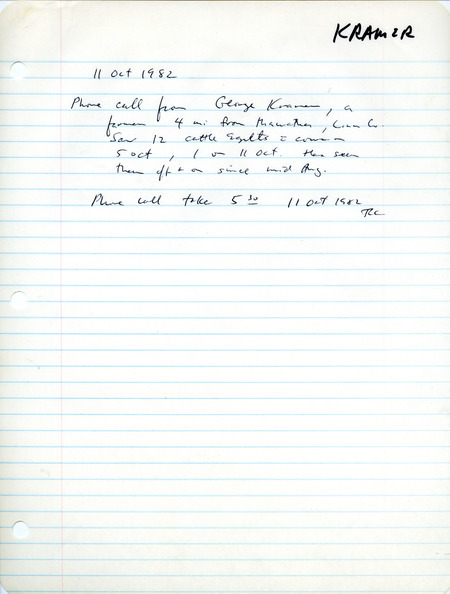 KRAMER
11 Oct 1982
Phone call from George Kramer, a
farmer 4 mi from Hiawatha, Linn Co.
Saw 12 cattle egrets c cows on
5 Oct, 1 on 11 Oct. Has seen
them off + on since mid Aug.
Phone call taken 5 30 11 Oct 1982